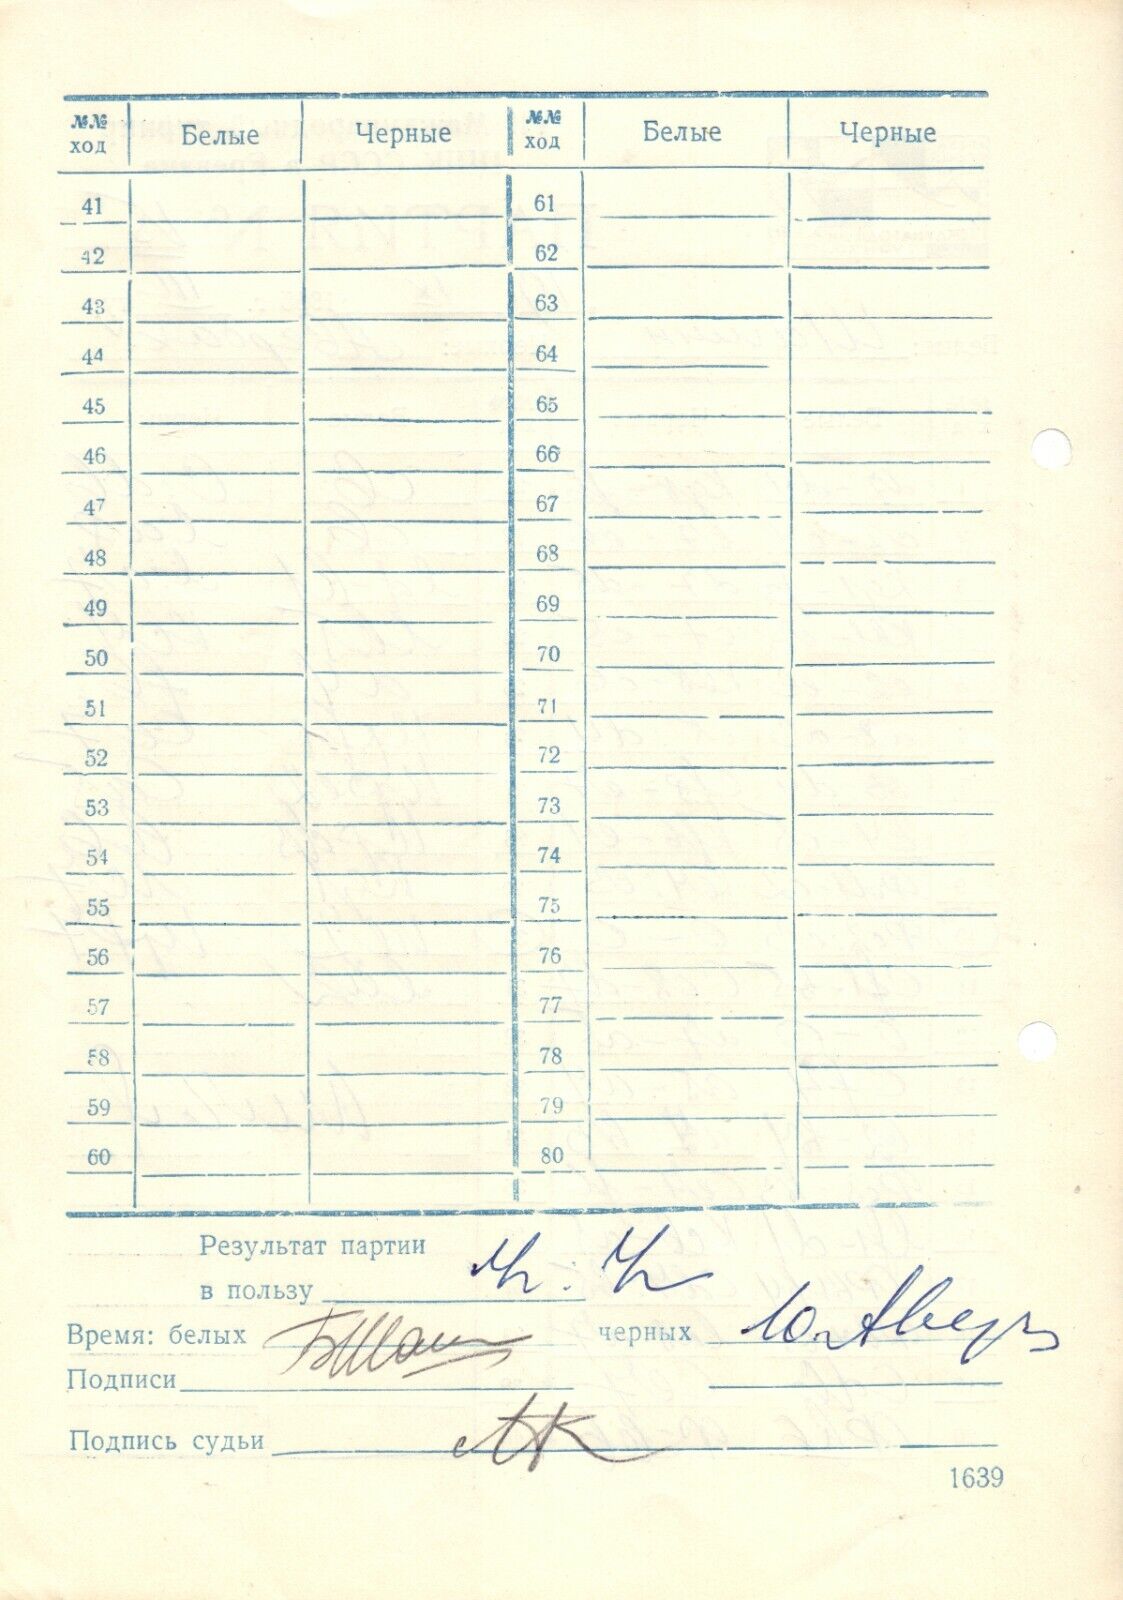 №№ ход Белые Черные №№ ход Белые Черные
41 61
42 62
43 63
44 64
45 65
46 66
47 67
48 68
49 69
50 70
51 71
52 72
53 73
54 74
55 75
56 76
57 77
58 78
59 79
60 80
Результат партии
в пользу ½ : ½
Время: белых черных Ю. Авер
Подписи
Подпись судьи
1639